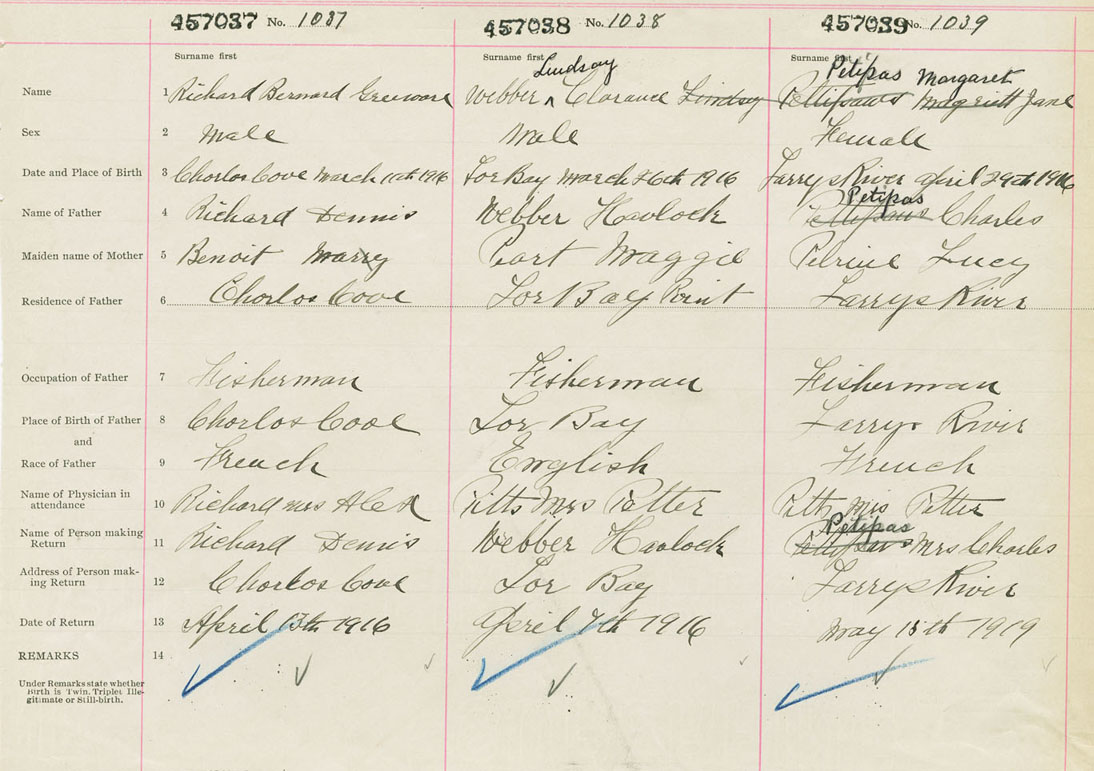 457037 No. 1037 457038 No. 1038 457039 No. 1039
Surname first Surname first Surname first
Lindsay Petipas Margaret
Name 1 Richard Bernard Webber ^ Clarance Lindsy Pettipaws Jane
Sex 2 Male Male Female
Date and Place of Birth 3 Charlos Cove March 11th 1916 Tor Bay March 26th 1916 Larrys River april 29th 1916
Petipas
Name of Father 4 Richard Dennis Webber Havlock Pettipaws Charles
Maiden name of Mother 5 Benoit Marry Cart Maggie Pelrine Lucy
Residence of Father 6 Charlos Cove Tor Bay Point Larrys River
Occupation of Father 7 Fisherman Fisherman Fisherman
Place of Birth of Father 8 Charlos Cove Tor Bay Larrys River
and
Race of Father 9 French English French
Name of Physician in
attendance 10 Richard mrs Alex Pitts Mrs Potter Pitts Mrs Petter
Petipas
Name of Person making
Return 11 Richard Dennis Webber Havlock Pettipaws Mrs Charles
Address of Person mak-
ing Return 12 Charlos Cove Tor Bay Larrys River
Date of Return 13 April 13th 1916 April 7th 1916 may 15th 1919
REMARKS 14
Under Remarks state whether
Birth is Twin, Triplet, Ille-
gitimate or Still-birth.